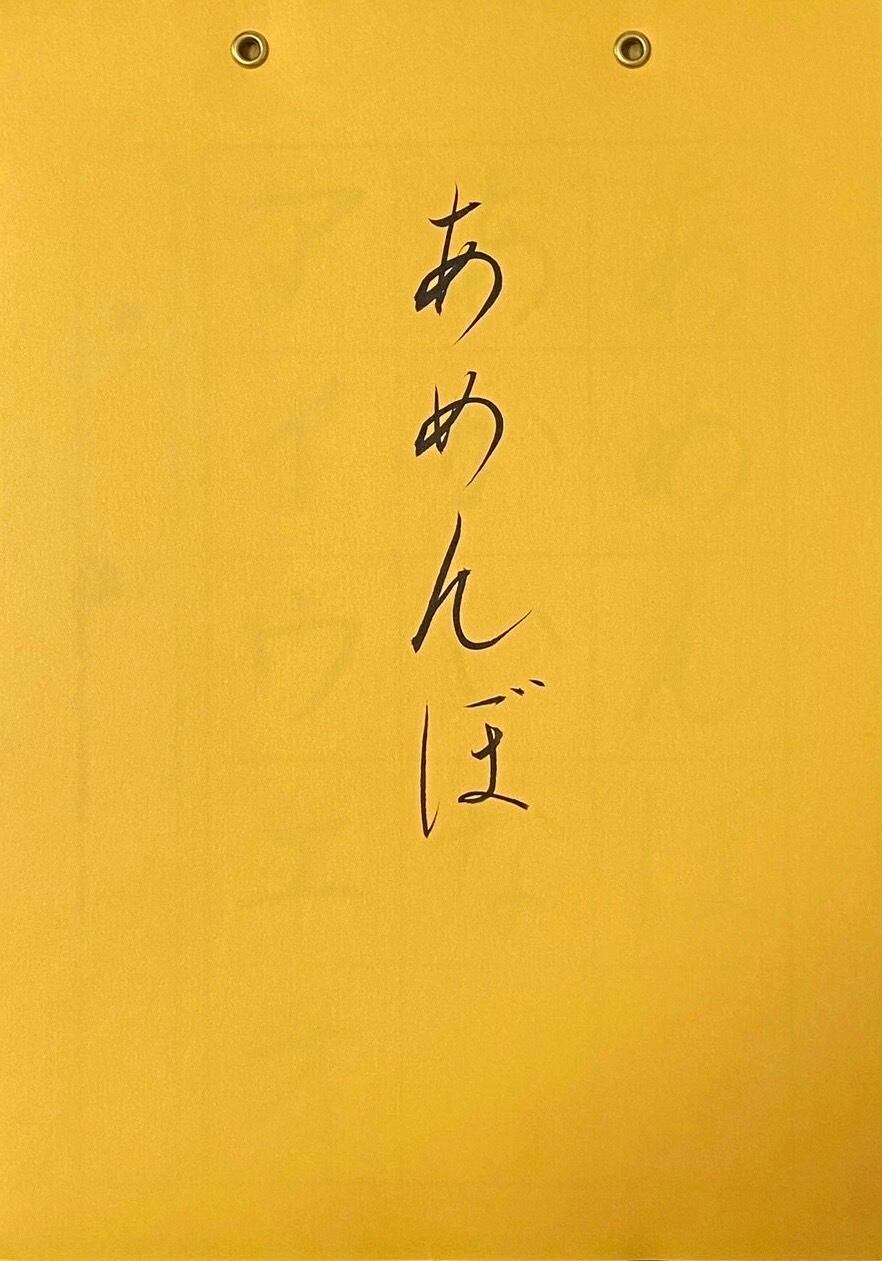 あめんぼ